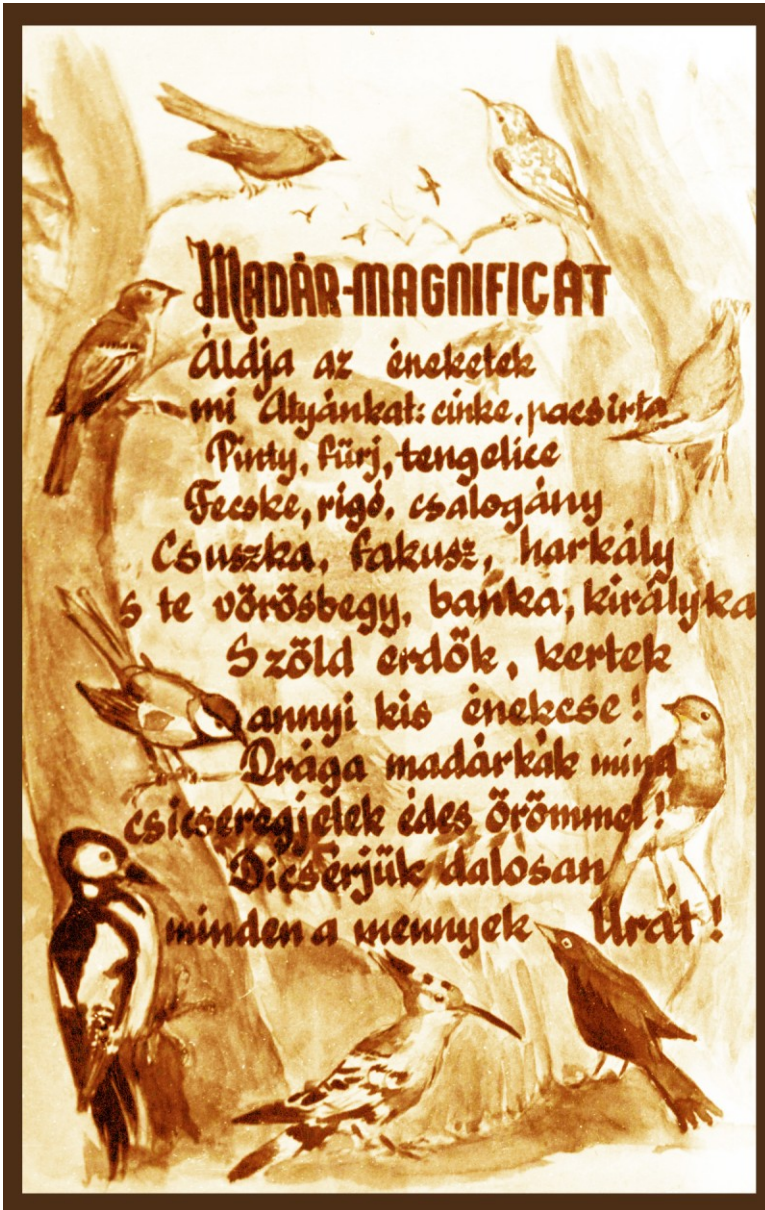 MADÁR-MAGNIFICAT
Áldja az éneketek
mi Atyánkat: cinke, pacsirta
Pinty, fürj, tengelice
Fecske, rigó, csalogány
Csuszka, fakusz, harkály
s te vörösbegy, banka, királyka
Szőld erdők, kertek
annyi kis énekese!
Drága madárkák mind
csicseregjetek édes örömmel!
Dicsérjük dalosan
minden a mennyek Urát!